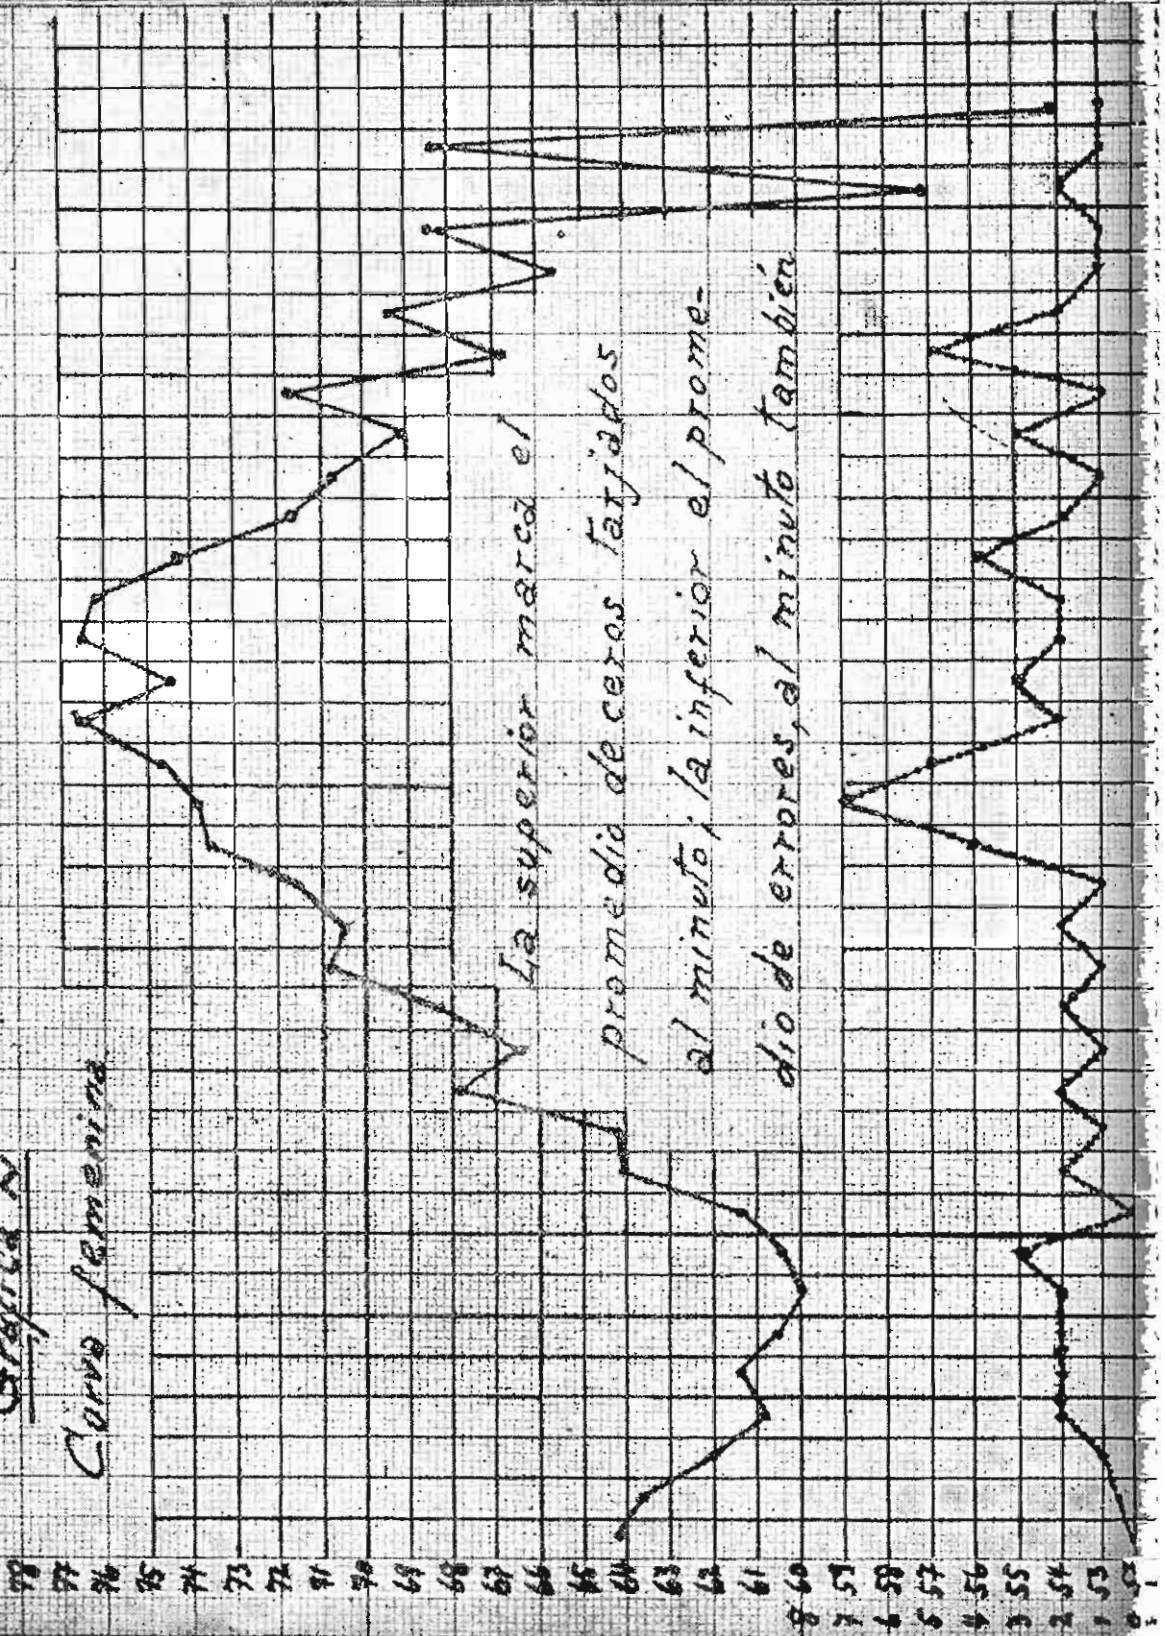 Gráfica N
Curva femenina
La superior marca el
promedio de ceros tarjados
al minuto; la inferior el prome-
dio de errores, al minuto también
78
77
76
75
74
73
72
71
70
69
68
67
66
65
64
63
62
61
8 60
7 59
6 58
5 57
4 56
3 55
2 54
1 53
0 52